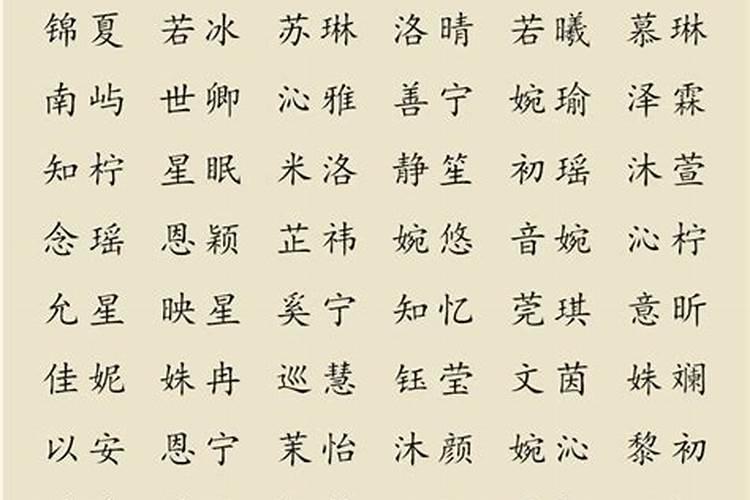 锦夏 若冰 苏琳 洛晴 若曦 慕琳
南屿 世卿 沁雅 善宁 婉瑜 泽霖
知柠 星眠 米洛 静笙 初瑶 沐萱
念瑶 恩颖 芷祎 婉悠 音婉 沁柠
允星 映星 奚宁 知忆 莞琪 意昕
佳妮 姝冉 巡慧 钰莹 文茵 姝斓
以安 恩宁 茉怡 沐颜 婉沁 黎初